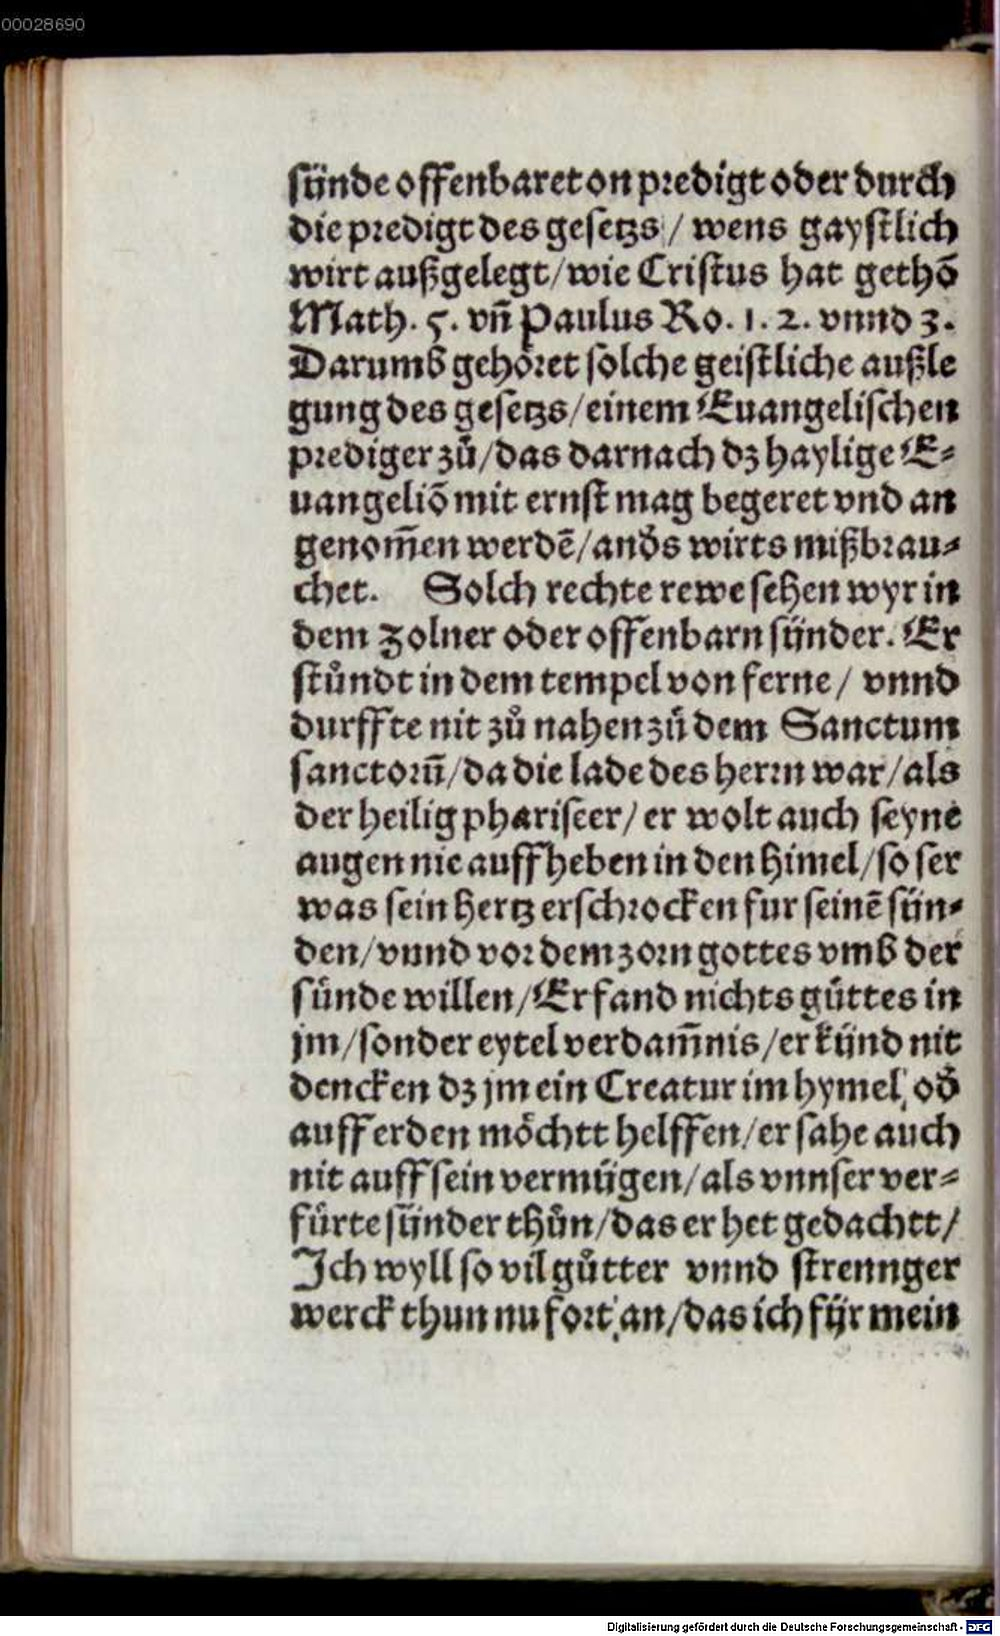 00028690
sünde offenbaret on predigt oder durch
die predigt des gesetzs / wens gaystlich
wirt außgelegt/wie Cristus hat gethō
Math. 5. vn̄ Paulus Ro. 1. 2. vnnd 3.
Darumb gehöret solche geistliche außle
gung des gesetzs/einem Euangelischen
prediger zů/das darnach dz haylige E-
uangeliō mit ernst mag begeret vnd an
genom̄en werdē/anďs wirts mißbrau-
chet. Solch rechte rewe sehen wyr in
dem zolner oder offenbarn sünder. Er
stůndt in dem tempel von ferne / vnnd
durffte nit zů nahen zů dem Sanctum
sanctorū/da die lade des herrn war/als
der heilig phariseer/ er wolt auch seyne
augen nie auffheben in den himel/so ser
was sein hertz erschrocken fur seinē sün-
den/vnnd vor dem zorn gottes vmb der
sünde willen/Er fand nichts gůttes in
jm/sonder eytel verdam̄nis/er künd nit
dencken dz jm ein Creatur im hymel, oď
auff erden möchtt helffen/er sahe auch
nit auff sein vermügen/als vnnser ver-
fürte sünder thůn/das er het gedachtt/
Ich wyll so vil gůtter vnnd strennger
werck thun nu fort an/das ich für mein
Digitalisierung gefördert durch die Deutsche Forschungsgemeinschaft - DFG